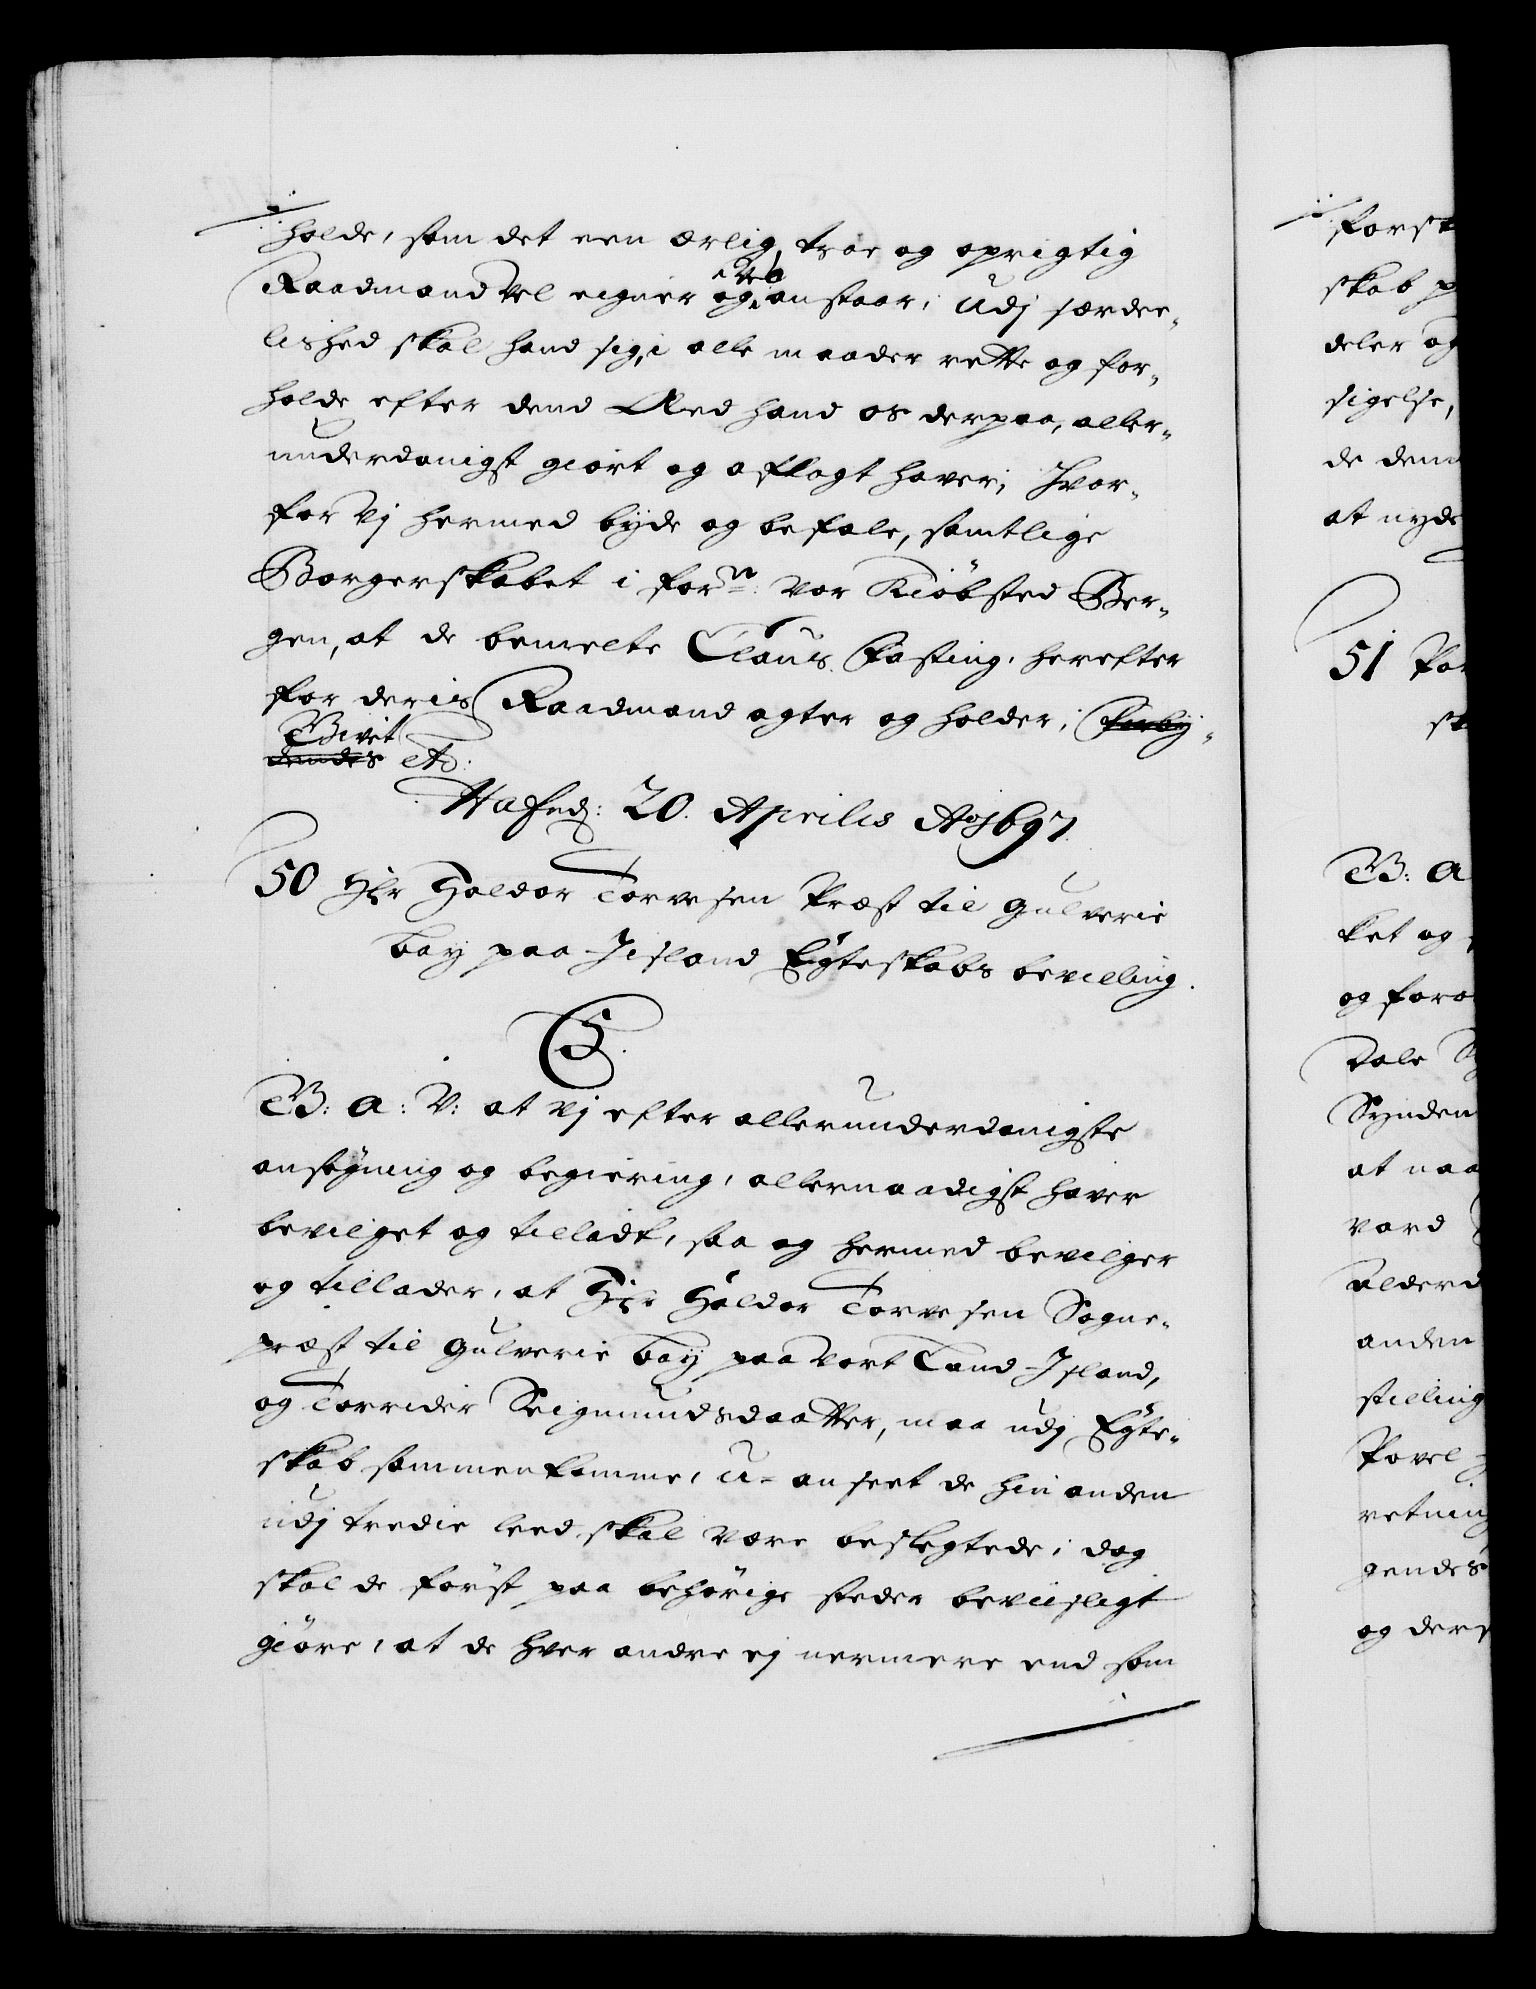 holde, som det een ærlig, troe og oprigtig
Raadmand vel eigner og vel anstaar; Udj særdee-
lished skal hand sig, i alle maader rette og for-
holde efter dend Æed hand os derpaa, aller-
underdanigst giort og aflagt haver; Hvor-
for Vj hermed byde og befale, samtlige
Borgerskabet i forne: vor Kiöbsted Ber-
gen, at de bemelte Claus Fasting, herefter
for deris Raadmand agter og holder; Forby-
dendes Givet etc:
Hafnæ: 20. Aprilis Ao 1697.
50 Hr Haldor Torvesen Præst til Gulverie
bay paa Jisland Egteskabs bevilling.
C5.
G: A: V: at Vj efter allerunderdanigste
ansøgning og begiering, allernaadigst haver
bevilget og tilladt, saa og hermed bevilger
og tillader, at Hr Haldor Torvesen Sogne-
præst til Gulverie bay paa vort Land Jsland,
og Torrider Seigmundsdaatter, maa udj Egte-
skab sammenkomme, u-anseet de hin anden
udj tredie leed skal være beslegtede; dog
skal de först paa behörige steder beviisligt
giöre, at de hver andre ej nermere end som
forst
skab p
deler og
sigelse,
de denn
at nyde
51 Po
sk
G: A
ket og
og foro
Dale
Synden
at naa
vard
alderd
anden
stilling
Povel
retning
gendes
og ders